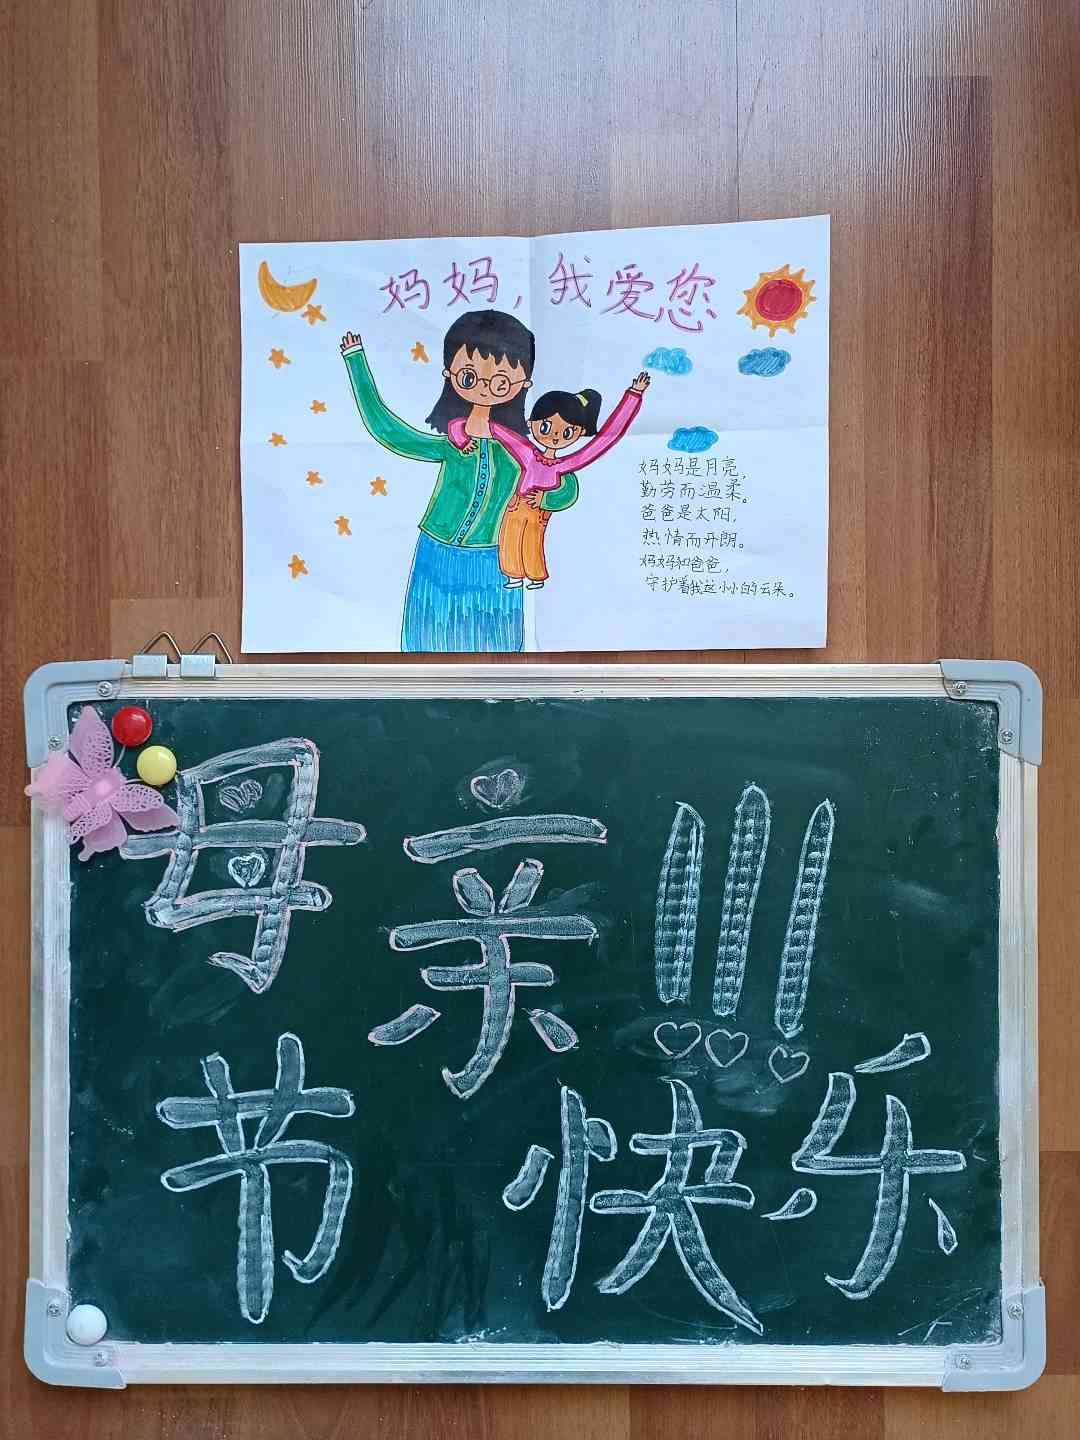 妈妈,我爱您
妈妈是月亮,
勤劳而温柔。
爸爸是太阳,
热情而开朗。
妈妈和爸爸,
守护着我这小小的云朵。
母亲!!!
节快乐